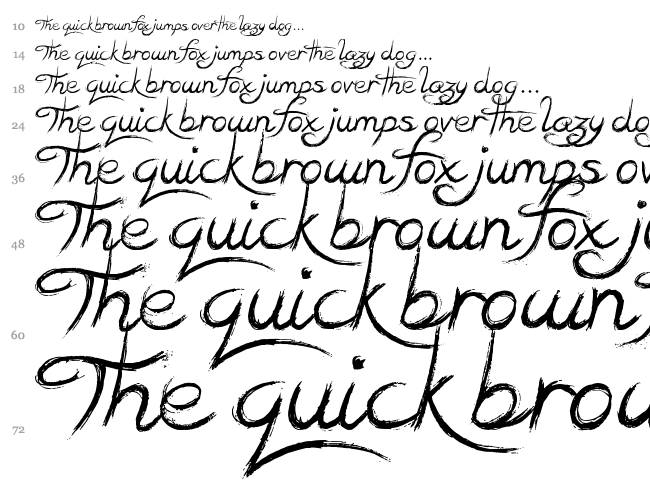 10 The quick brown fox jumps over the lazy dog...
14 The quick brown fox jumps over the lazy dog...
18 The quick brown fox jumps over the lazy dog...
24 The quick brown fox jumps over the lazy do
36 The quick brown fox jumps ov
48 The quick brown fox j
60 The quick brown
72 The quick brou